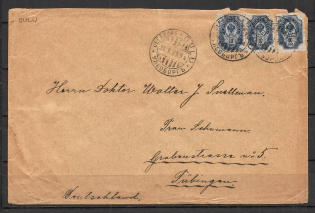 OULU
Herrn Doktor Walter J Snellman.
Frau Schumann.
Grabenstrasse No 5.
Tübingen
Deutschland.